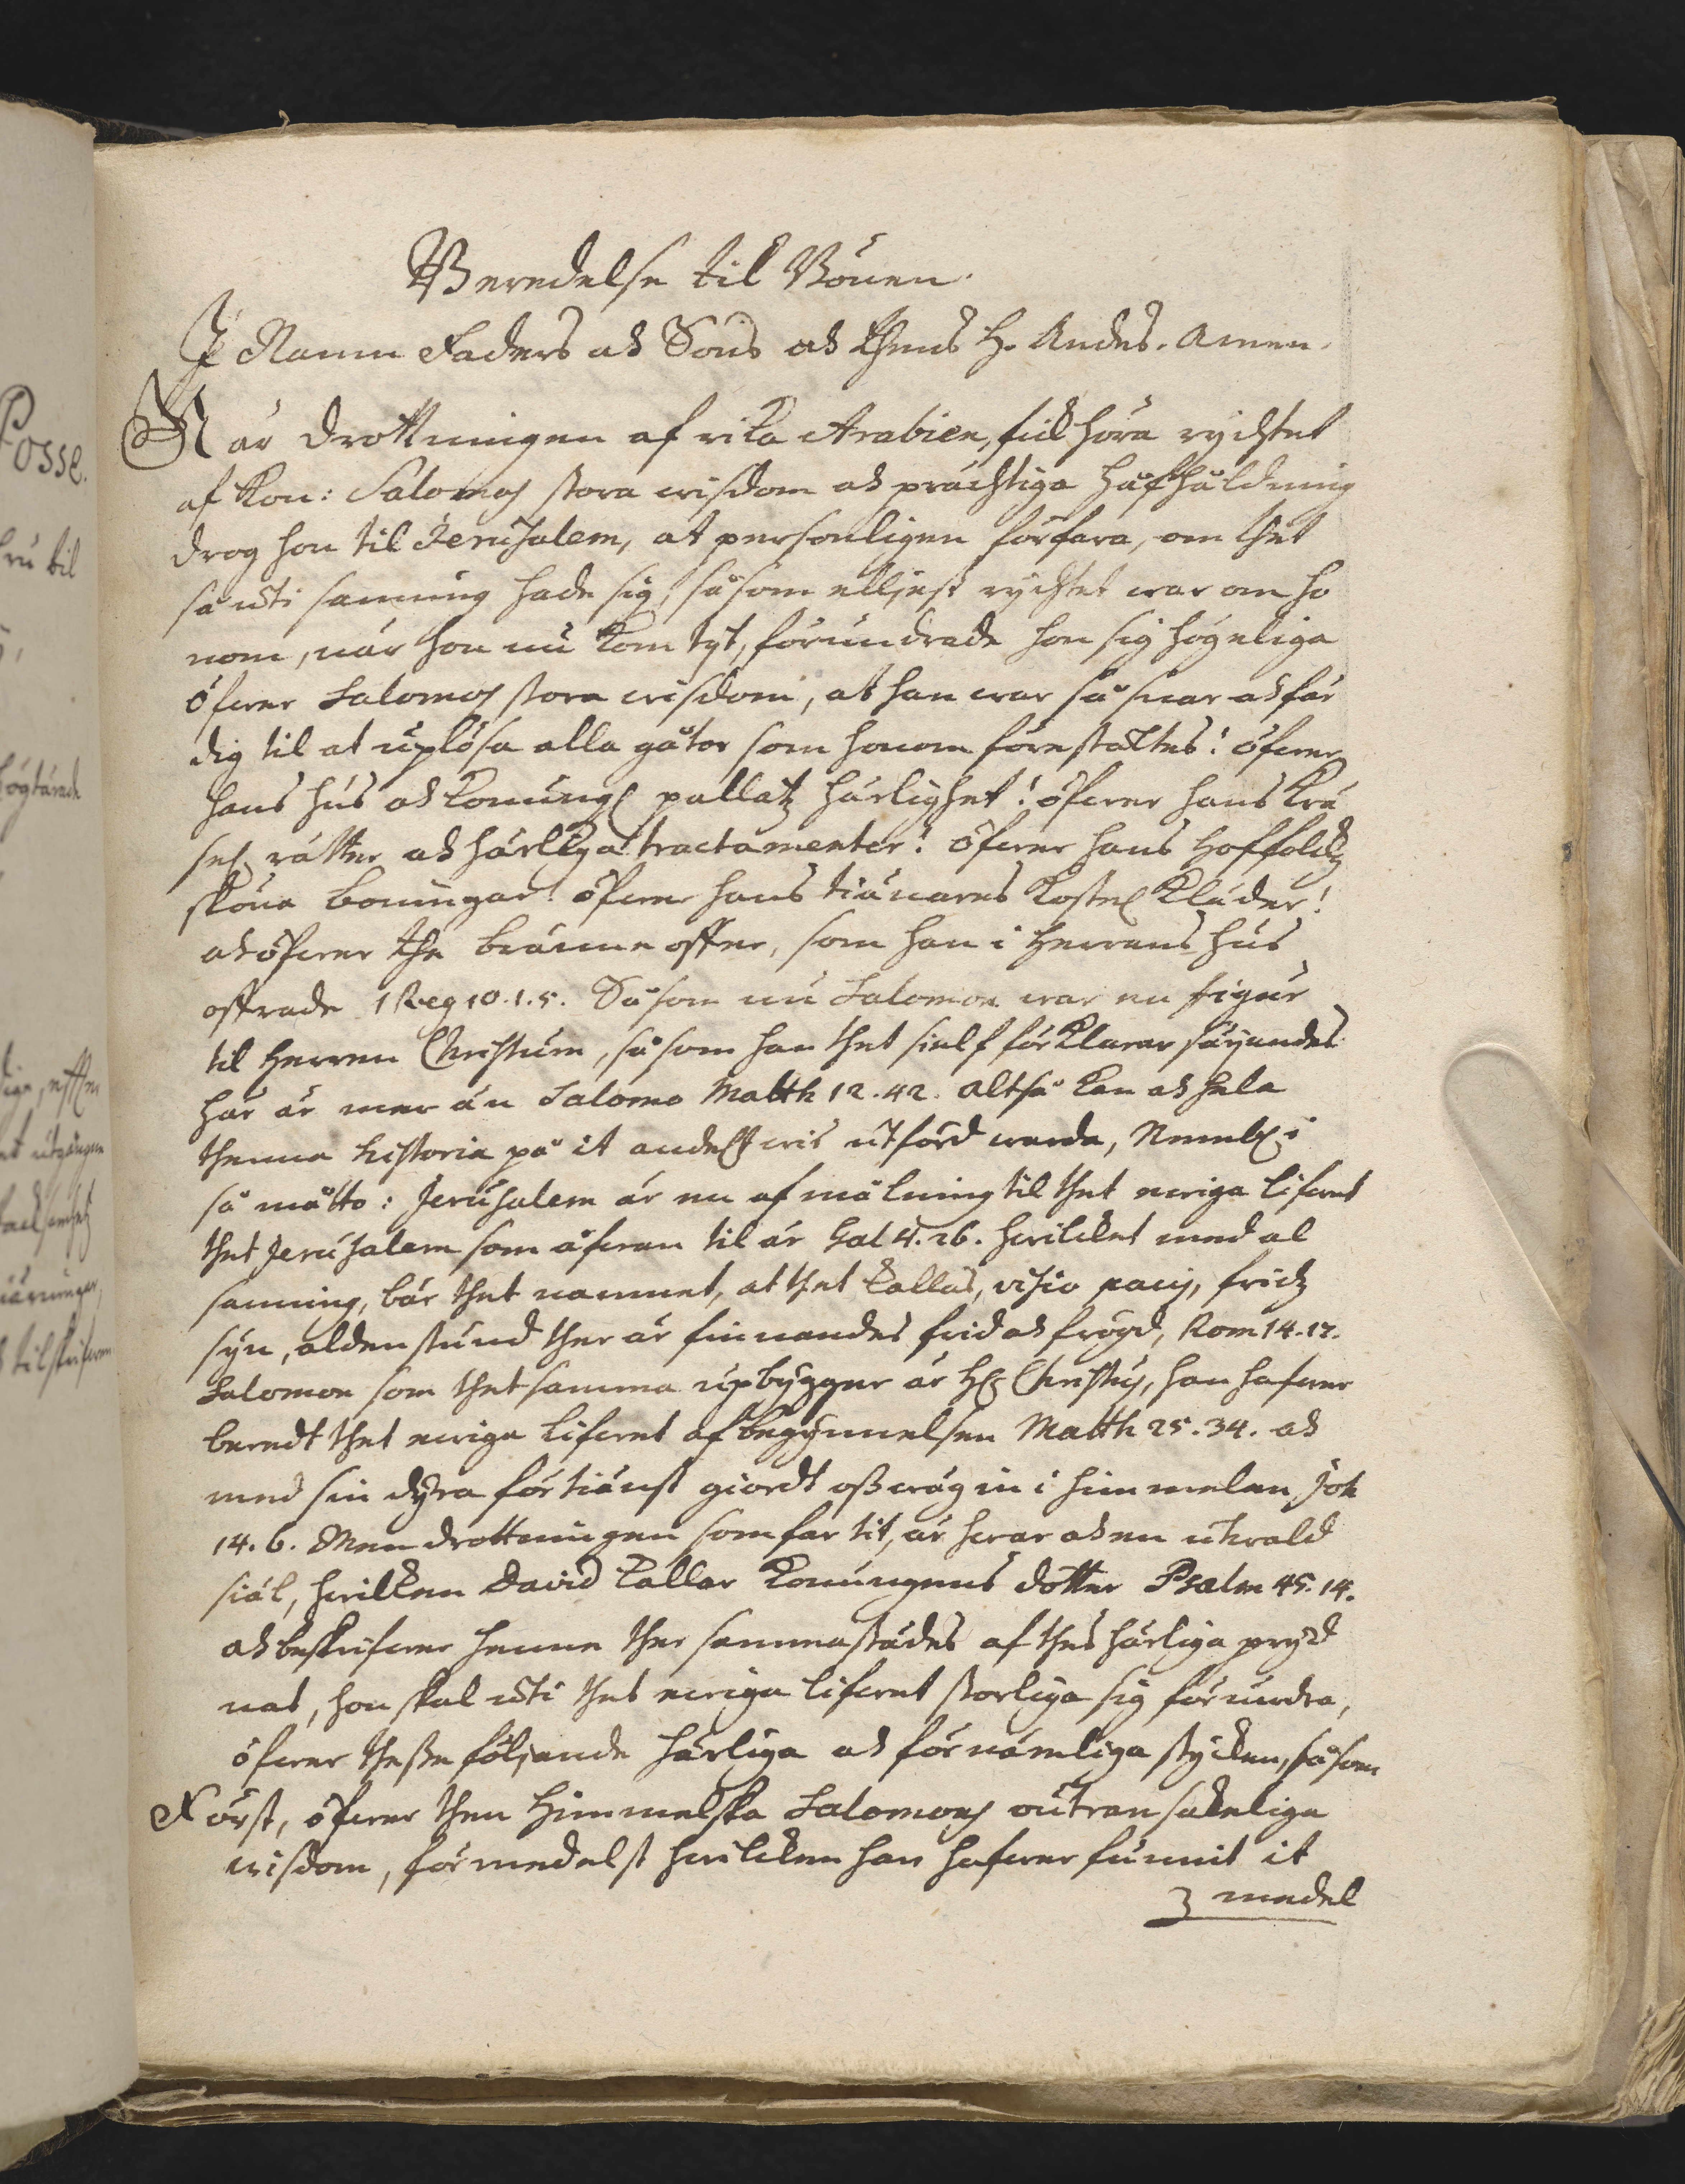 Beredelse til Bönen.
I Namn Faders och Sons och thens H. Andes. Amen.
När Drottningen af rika Arabien, fick höra rychtet
af Kon: Salomos stora wisdom och prächtiga håfhåldning
drog hon til Jerusalem, at personligen förfara, om thet
så uti sanning hade sig, såsom elljest rychtet war om ho
nom, när hon nu kom tijt, förundrade hon sig högeliga
öfwer Salomos stora wisdom, at han war så snar och fär
dig til at uplösa alla gåtor som honom förestältes! öfwer
hans hus och konungs pallatz härlighet! öfwer hans krä
sel. rätter och härliga tractamenter! öfwer hans hoffolckz
sköna boningar! öfwer hans tiänares kostel. kläder!
och öfwer the bränneoffer, som han i Herrans hus
offrade 1 Reg 10.1.5. Såsom nu Salomon war en figur
til Herren Christum, såsom han thet sielf förklarar säijandes
här är mer än Salomo Matth 12.42. altså kan och hela
thenna historia på it andelit wis utförd warda, Neml. i
så måtto: Jerusalem är en afmålning til thet ewiga lifwet
thet Jerusalem som ofwan til är Gal 4.26. hwilcket med al
sanning, bär thet namnet, at thet kallas, visio pacis, fridz
syn, aldenstund ther är finnandes frid och frögd, Rom 14.17.
Salomon som thet samma upbygger är H. Christus, han hafwer
beredt thet ewiga lifwet af begynnelsen Matth 25.34. och
med sin dyra förtiänst giordt oss wäg in i himmelen Joh
14.6. Men drottningen som far tit, är hwar och en utwald
siäl, hwilken David kallar Konungens dotter Psalm 45.14.
och beskrifwer henne ther sammastädes af thes härliga pryd
nat, hon skal uti thet ewiga lifwet storliga sig förundra,
öfwer thesse följande härliga och förnämliga stycken, såsom
Först, öfwer then Himmelska Salomons outransakeliga
wisdom, förmedelst hwilcken han hafwer funnit it
3 medel